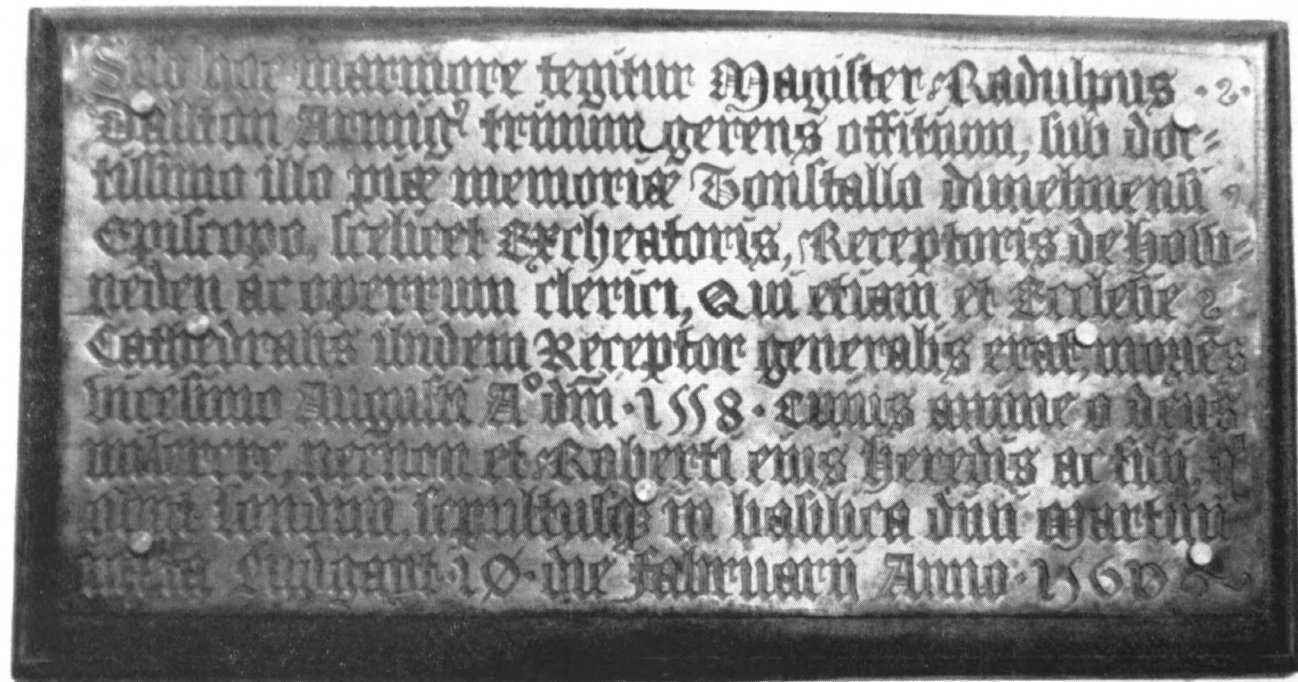 Sub hoc marmore tegitur Magister Radulpus
Dallion Armigʳ trinum gerens offitium, sub doc-
tissimo illo piæ memoriæ Tonstallo dunelmensi
Episcopo, scelicet Excheatoris, Receptoris de Howi-
neden ac operrum clerici, Qui etiam et Ecclesie
Cathedralis ibidem Receptor generalis erat, moriēs
vicesimo Augusti Aº dm̄ · 1558 · Cuius anime o deus
miserere, necnon et Roberti eius heredis ac filii, qͥ
obiit londini sepultusqꝫ in basilica diui Martini
iuxta Ludgatt 10 die Fabruarii Anno · 1560